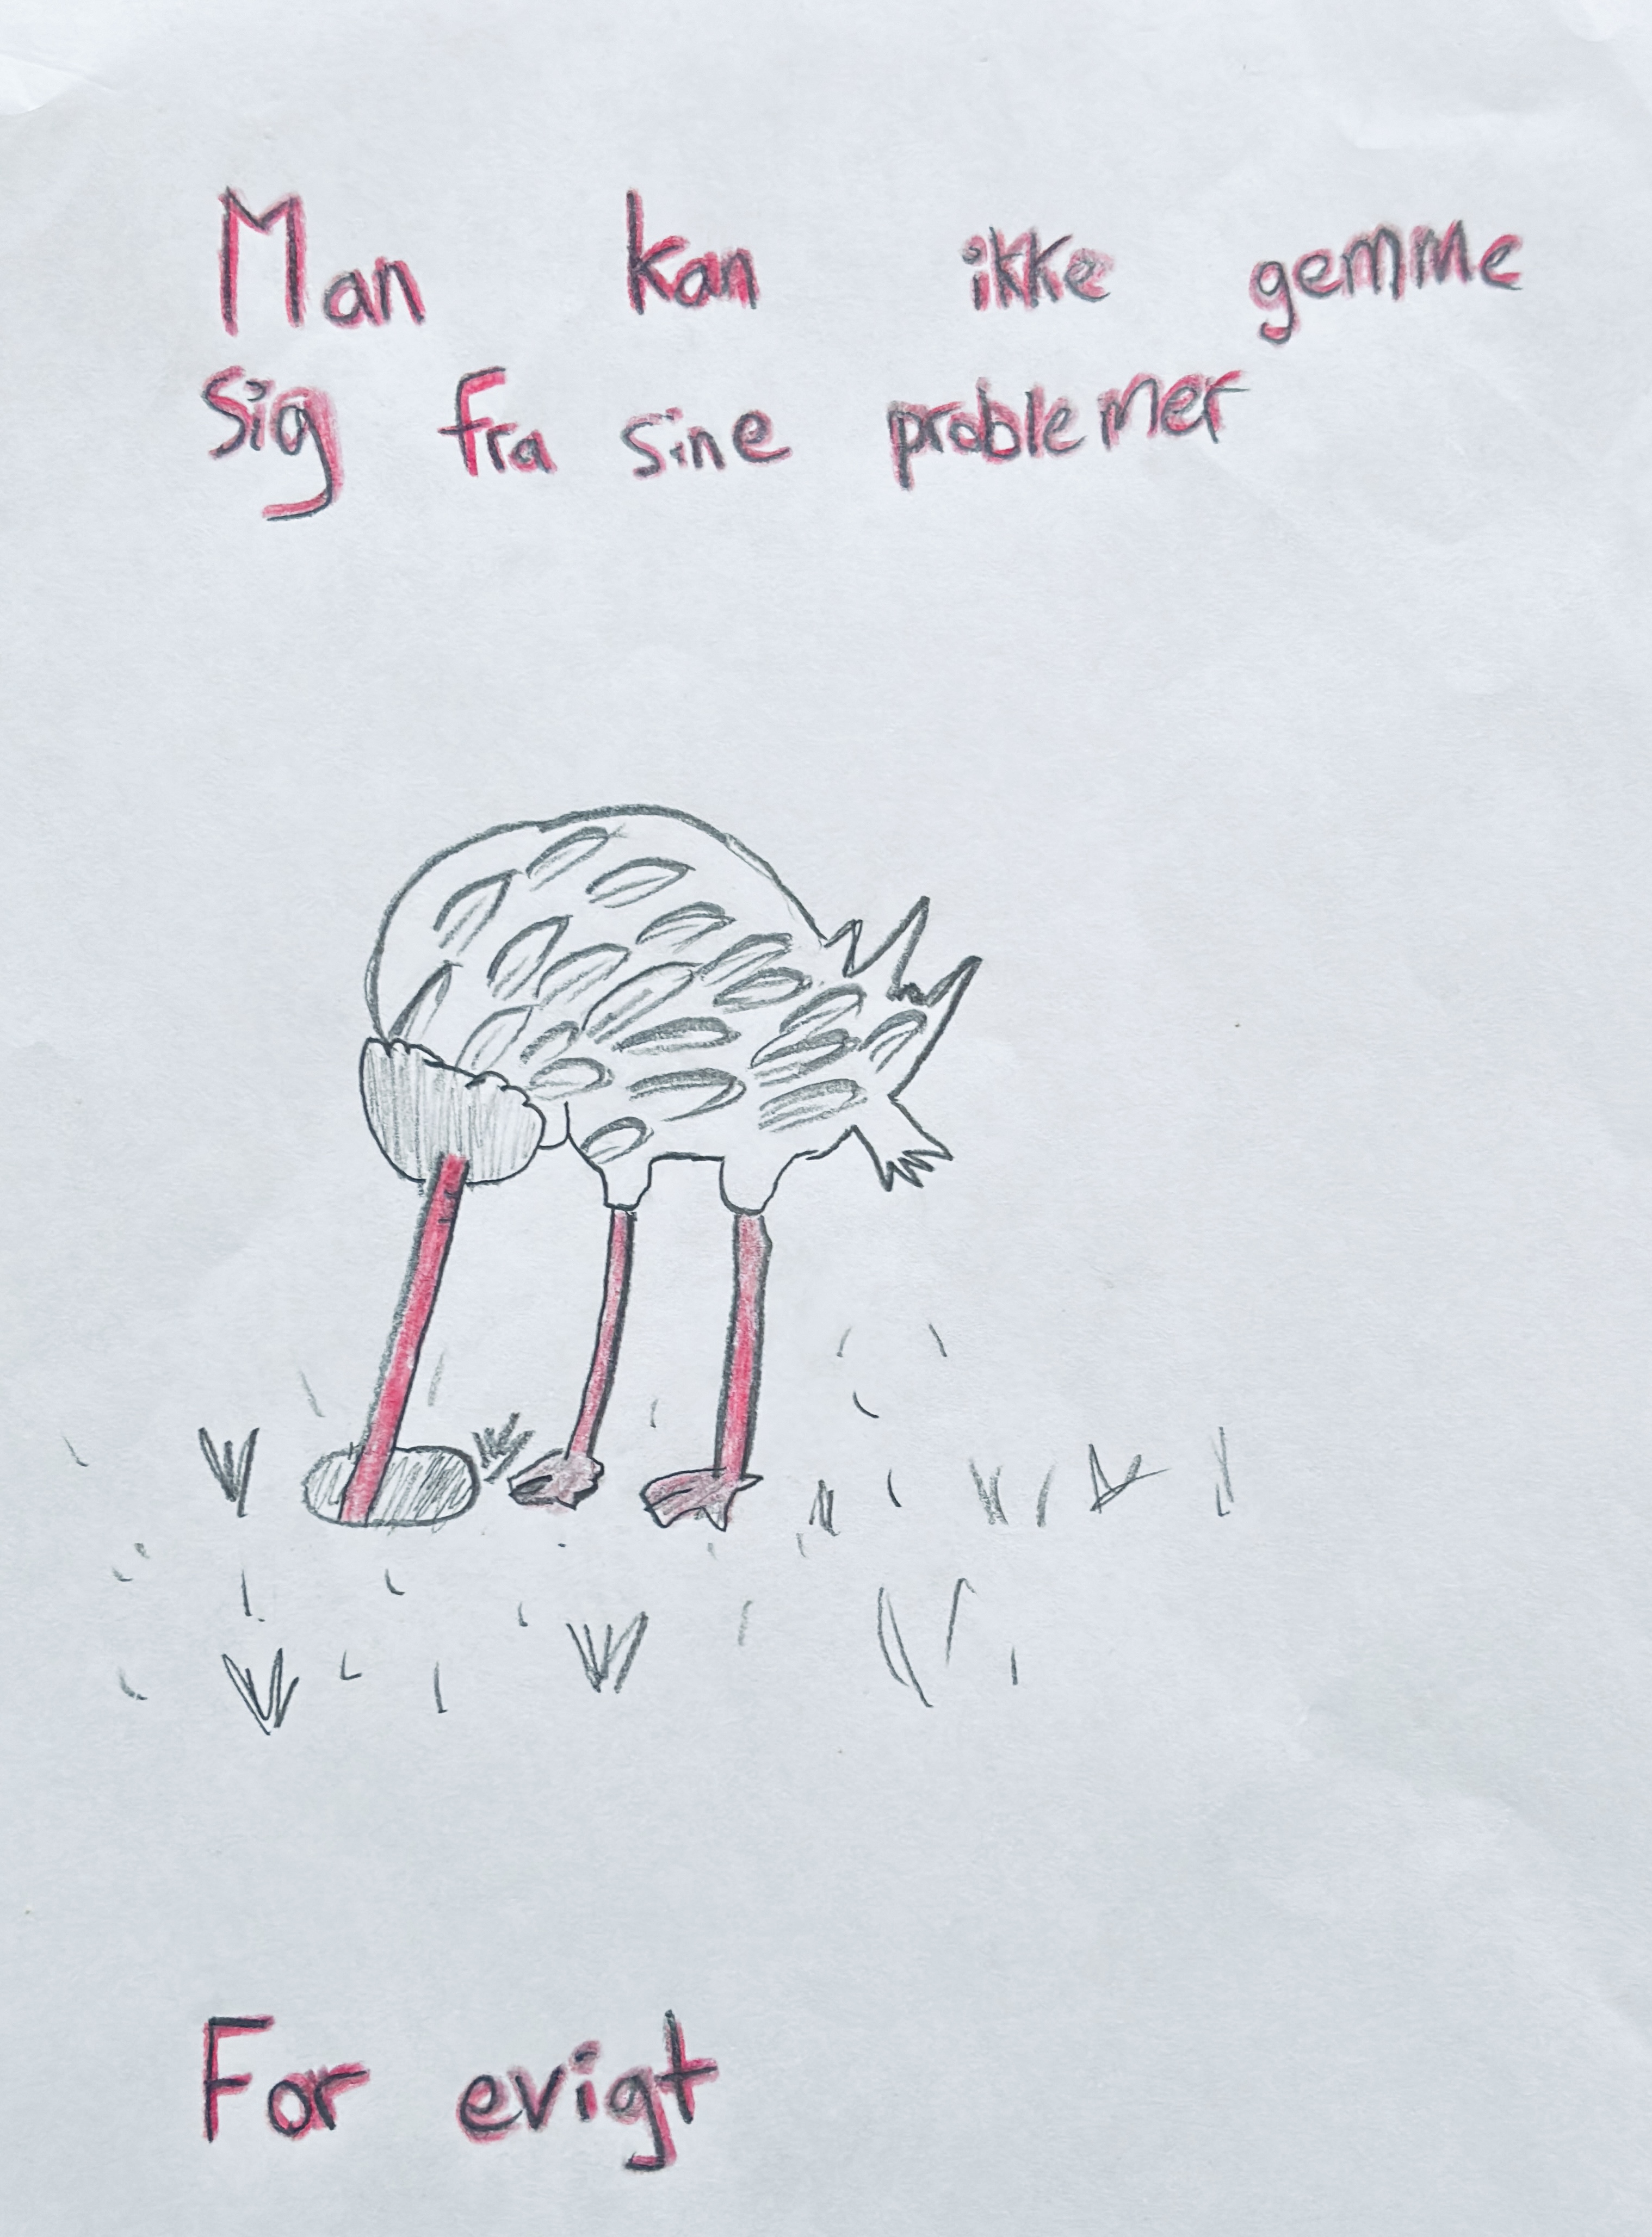 Man kan ikke gemme
sig fra sine problemer
For evigt